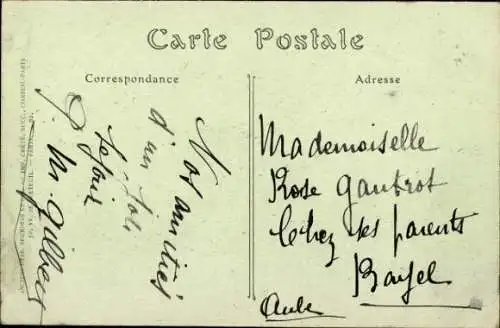 Carte Postale
Correspondance
Adresse
Nos amitiés
d'un joli
séjour
Gilbert
Mademoiselle
Rose Gautrot
Chez ses parents
Bayel
Aube